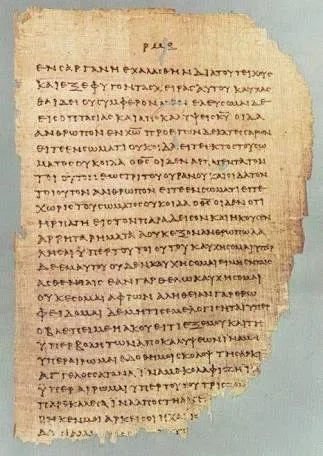 ΕΝ ΣΑΡΓΑΝΗ ΕΧΑΛΑΣΘΗΝ ΔΙΑ ΤΟΥ ΤΕΙΧΟΥΣ
ΚΑΙ ΕΞΕΦΥΓΟΝ ΤΑΣ ΧΕΙΡΑΣ ΑΥΤΟΥ ΚΑΥΧΑΣ
ΘΑΙ ΔΕΙ ΟΥ ΣΥΜΦΕΡΟΝ ΜΕΝ ΕΛΕΥΣΟΜΑΙ ΔΕ
ΕΙΣ ΟΠΤΑΣΙΑΣ ΚΑΙ ΑΠΟΚΑΛΥΨΕΙΣ ΚΥ ΟΙΔΑ
ΑΝΘΡΩΠΟΝ ΕΝ ΧΩ ΠΡΟ ΕΤΩΝ ΔΕΚΑΤΕΣΣΑΡΩΝ
ΕΙΤΕ ΕΝ ΣΩΜΑΤΙ ΟΥΚ ΟΙΔΑ ΕΙΤΕ ΕΚΤΟΣ ΤΟΥ ΣΩ
ΜΑΤΟΣ ΟΥΚ ΟΙΔΑ Ο ΘΣ ΟΙΔΕΝ ΑΡΠΑΓΕΝΤΑ ΤΟΝ
ΤΟΙΟΥΤΟΝ ΕΩΣ ΤΡΙΤΟΥ ΟΥΡΑΝΟΥ ΚΑΙ ΟΙΔΑ ΤΟΝ
ΤΟΙΟΥΤΟΝ ΑΝΘΡΩΠΟΝ ΕΙΤΕ ΕΝ ΣΩΜΑΤΙ ΕΙΤΕ
ΧΩΡΙΣ ΤΟΥ ΣΩΜΑΤΟΣ ΟΥΚ ΟΙΔΑ Ο ΘΣ ΟΙΔΕΝ ΟΤΙ
ΗΡΠΑΓΗ ΕΙΣ ΤΟΝ ΠΑΡΑΔΕΙΣΟΝ ΚΑΙ ΗΚΟΥΣΕΝ
ΑΡΡΗΤΑ ΡΗΜΑΤΑ Α ΟΥΚ ΕΞΟΝ ΑΝΘΡΩΠΩ ΛΑ
ΛΗΣΑΙ ΥΠΕΡ ΤΟΥ ΤΟΙΟΥΤΟΥ ΚΑΥΧΗΣΟΜΑΙ ΥΠΕΡ
ΔΕ ΕΜΑΥΤΟΥ ΟΥΔΕΝ ΚΑΥΧΗΣΟΜΑΙ ΕΙ ΜΗ ΕΝ ΤΑΙΣ
ΑΣΘΕΝΕΙΑΙΣ ΕΑΝ ΓΑΡ ΘΕΛΩ ΚΑΥΧΗΣΟΜΑΙ
ΟΥΚ ΕΣΟΜΑΙ ΑΦΡΩΝ ΑΛΗΘΕΙΑΝ ΓΑΡ ΕΡΩ
ΦΕΙΔΟΜΑΙ ΔΕ ΜΗ ΤΙΣ ΕΜΕ ΛΟΓΙΣΗΤΑΙ ΥΠΕΡ
Ο ΒΛΕΠΕΙ ΜΕ Η ΑΚΟΥΕΙ ΤΙ ΕΞ ΕΜΟΥ ΚΑΙ ΤΗ
ΥΠΕΡΒΟΛΗ ΤΩΝ ΑΠΟΚΑΛΥΨΕΩΝ ΙΝΑ ΜΗ
ΥΠΕΡΑΙΡΩΜΑΙ ΕΔΟΘΗ ΜΟΙ ΣΚΟΛΟΨ ΤΗ ΣΑΡΚΙ
ΑΓΓΕΛΟΣ ΣΑΤΑΝΑ ΙΝΑ ΜΕ ΚΟΛΑΦΙΖΗ ΙΝΑ
ΥΠΕΡΑΙΡΩΜΑΙ ΥΠΕΡ ΤΟΥΤΟΥ ΤΡΙΣ ΤΟΝ
ΠΑΡΕΚΑΛΕΣΑ ΙΝΑ ΑΠΟΣΤΗ
ΚΕΝ ΜΟΙ ΑΡΚΕΙ ΣΟΙ Η ΧΑΡΙΣ